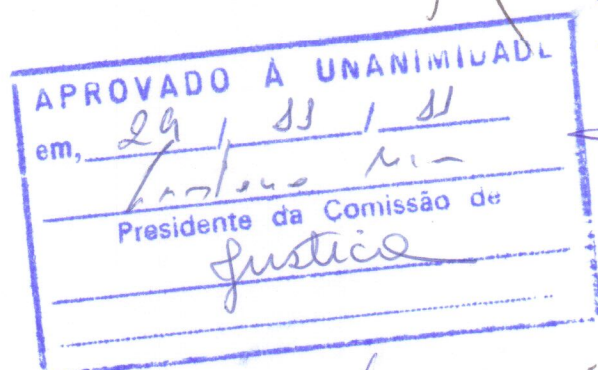 APROVADO À UNANIMIDADE
em, 29 / 11 / 11
Presidente da Comissão de
Justiça